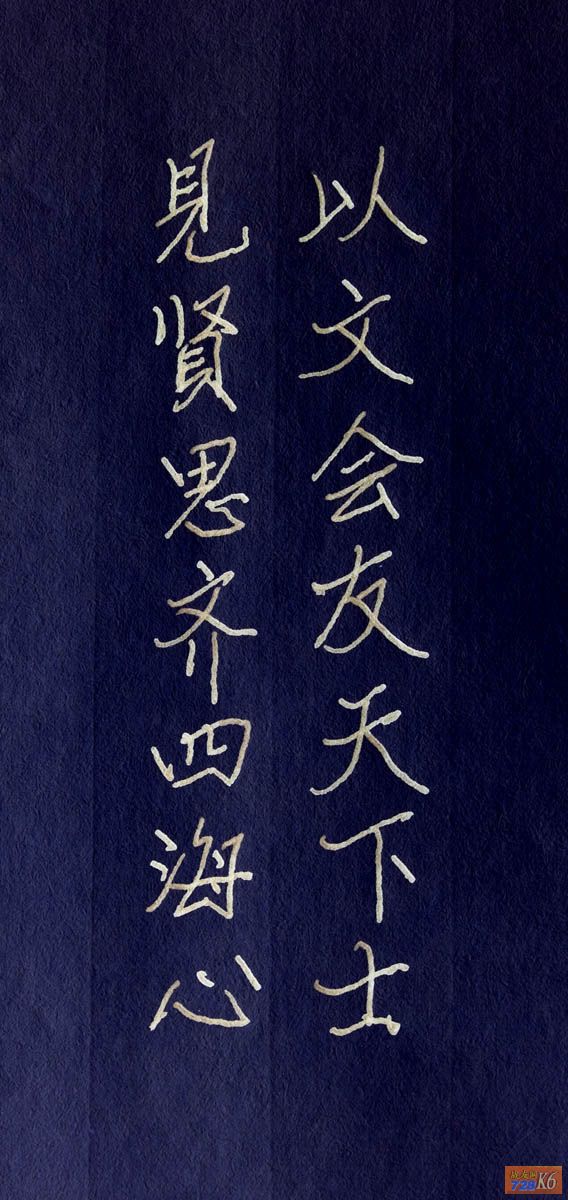 以文会友天下士
見贤思齐四海心
728 K6